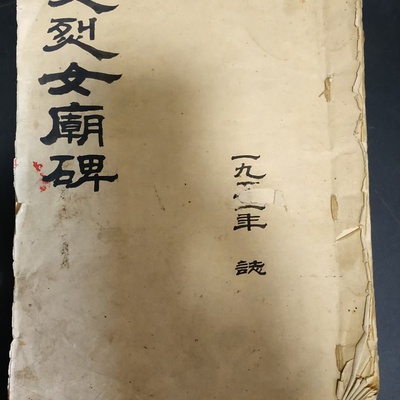 烈女廟碑
一九六年 誌